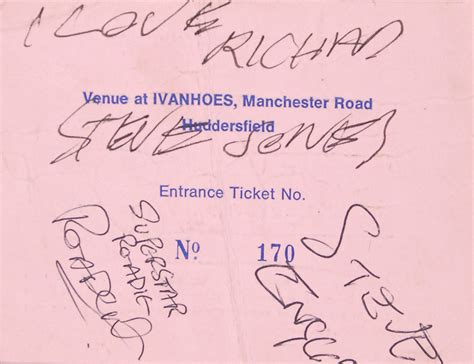 I LOVE RICHARD
Venue at IVANHOES, Manchester Road
Huddersfield
STEVE JONES
Entrance Ticket No.
Nº 170
SUPERSTAR
ROADIE
ROADENT
STEVE